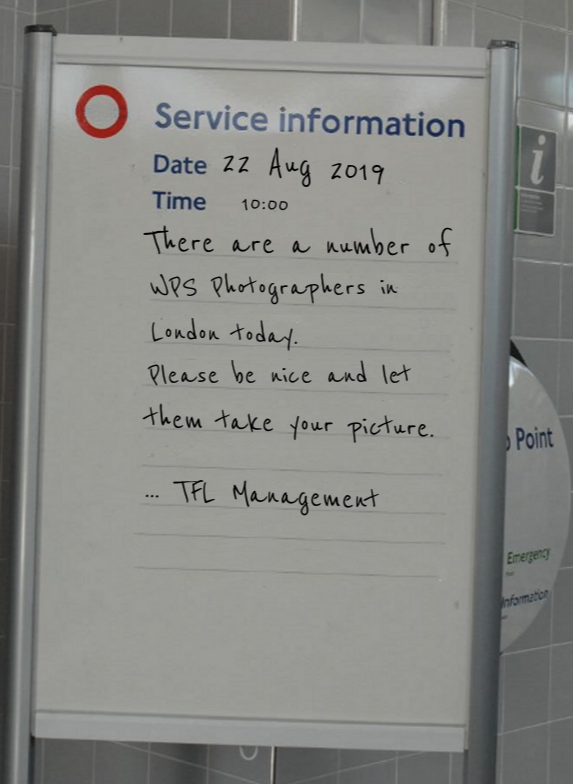 Service information
Date 22 Aug 2019
Time 10:00
There are a number of
WPS Photographers in
London today.
Please be nice and let
them take your picture.
... TFL Management
i
Point
Emergency
Information